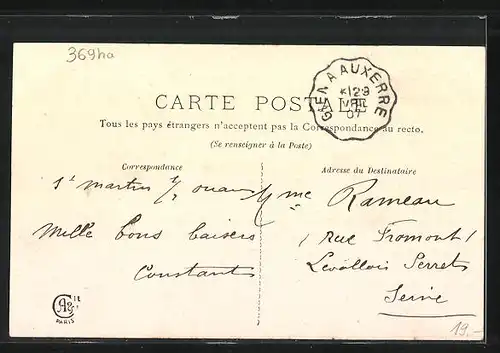 369ha
GIEN A AUXERRE
12-3
07
CARTE POSTALE
Tous les pays étrangers n'acceptent pas la Correspondance au recto.
(Se renseigner à la Poste)
Correspondance
Adresse du Destinataire
St martin s/ ouanne
Mme Rameau
Mille bons baisers
1 Rue Fromont 1
Constants
Levallois Perret
Seine
PARIS
19.-